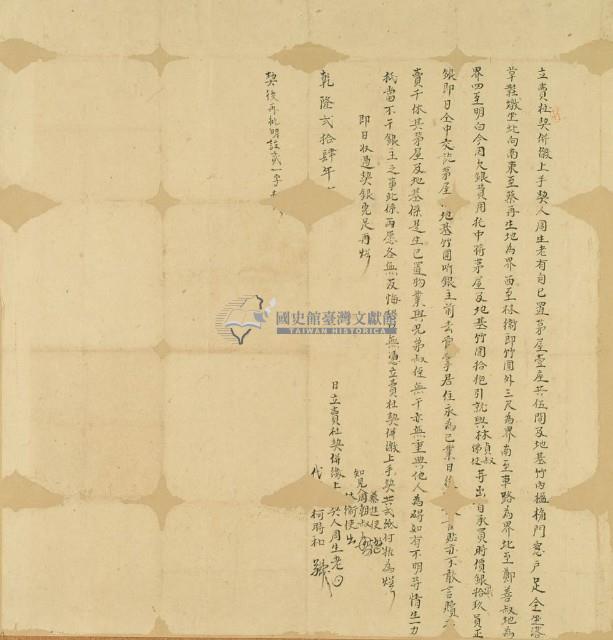 立賣杜契併繳上手契人周生老有自己置茅屋壹座共伍間及地基竹內楹桷門窓戶足全坐落
草鞋墩坐北向南東至蔡再生地為界西至林衛即竹圍外三尺為界南至車路為界北至鄭善叔地為
界四至明白今因欠銀費用托中將茅屋及地基竹圍拾把引就與林貞叔佛使等出首承買時價銀拾玖員正
銀即日仝中交訖茅屋地基竹圍听銀主前去掌管居住永為己業日後言貼亦不敢言贖
賣千休其茅屋及地基係是生己置物業與兄弟叔侄無干亦無重典他人為碍如有不明等情生一力
抵當不干銀主之事此係兩愿各無反悔無憑立賣杜契併繳上手契共貳紙付執為炤
即日收過契銀完足再炤
乾隆貳拾肆年
日立賣杜契併繳上人周生老
知見
代 柯時和 號
契後再批明註貳一字
國史館臺灣文獻館
TAIWAN HISTORICA